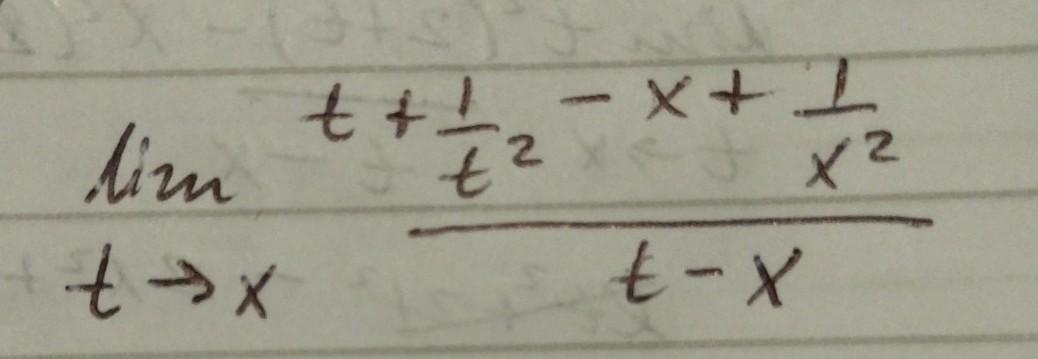 lim t → x (t + 1/t² - x + 1/x²) / (t - x)